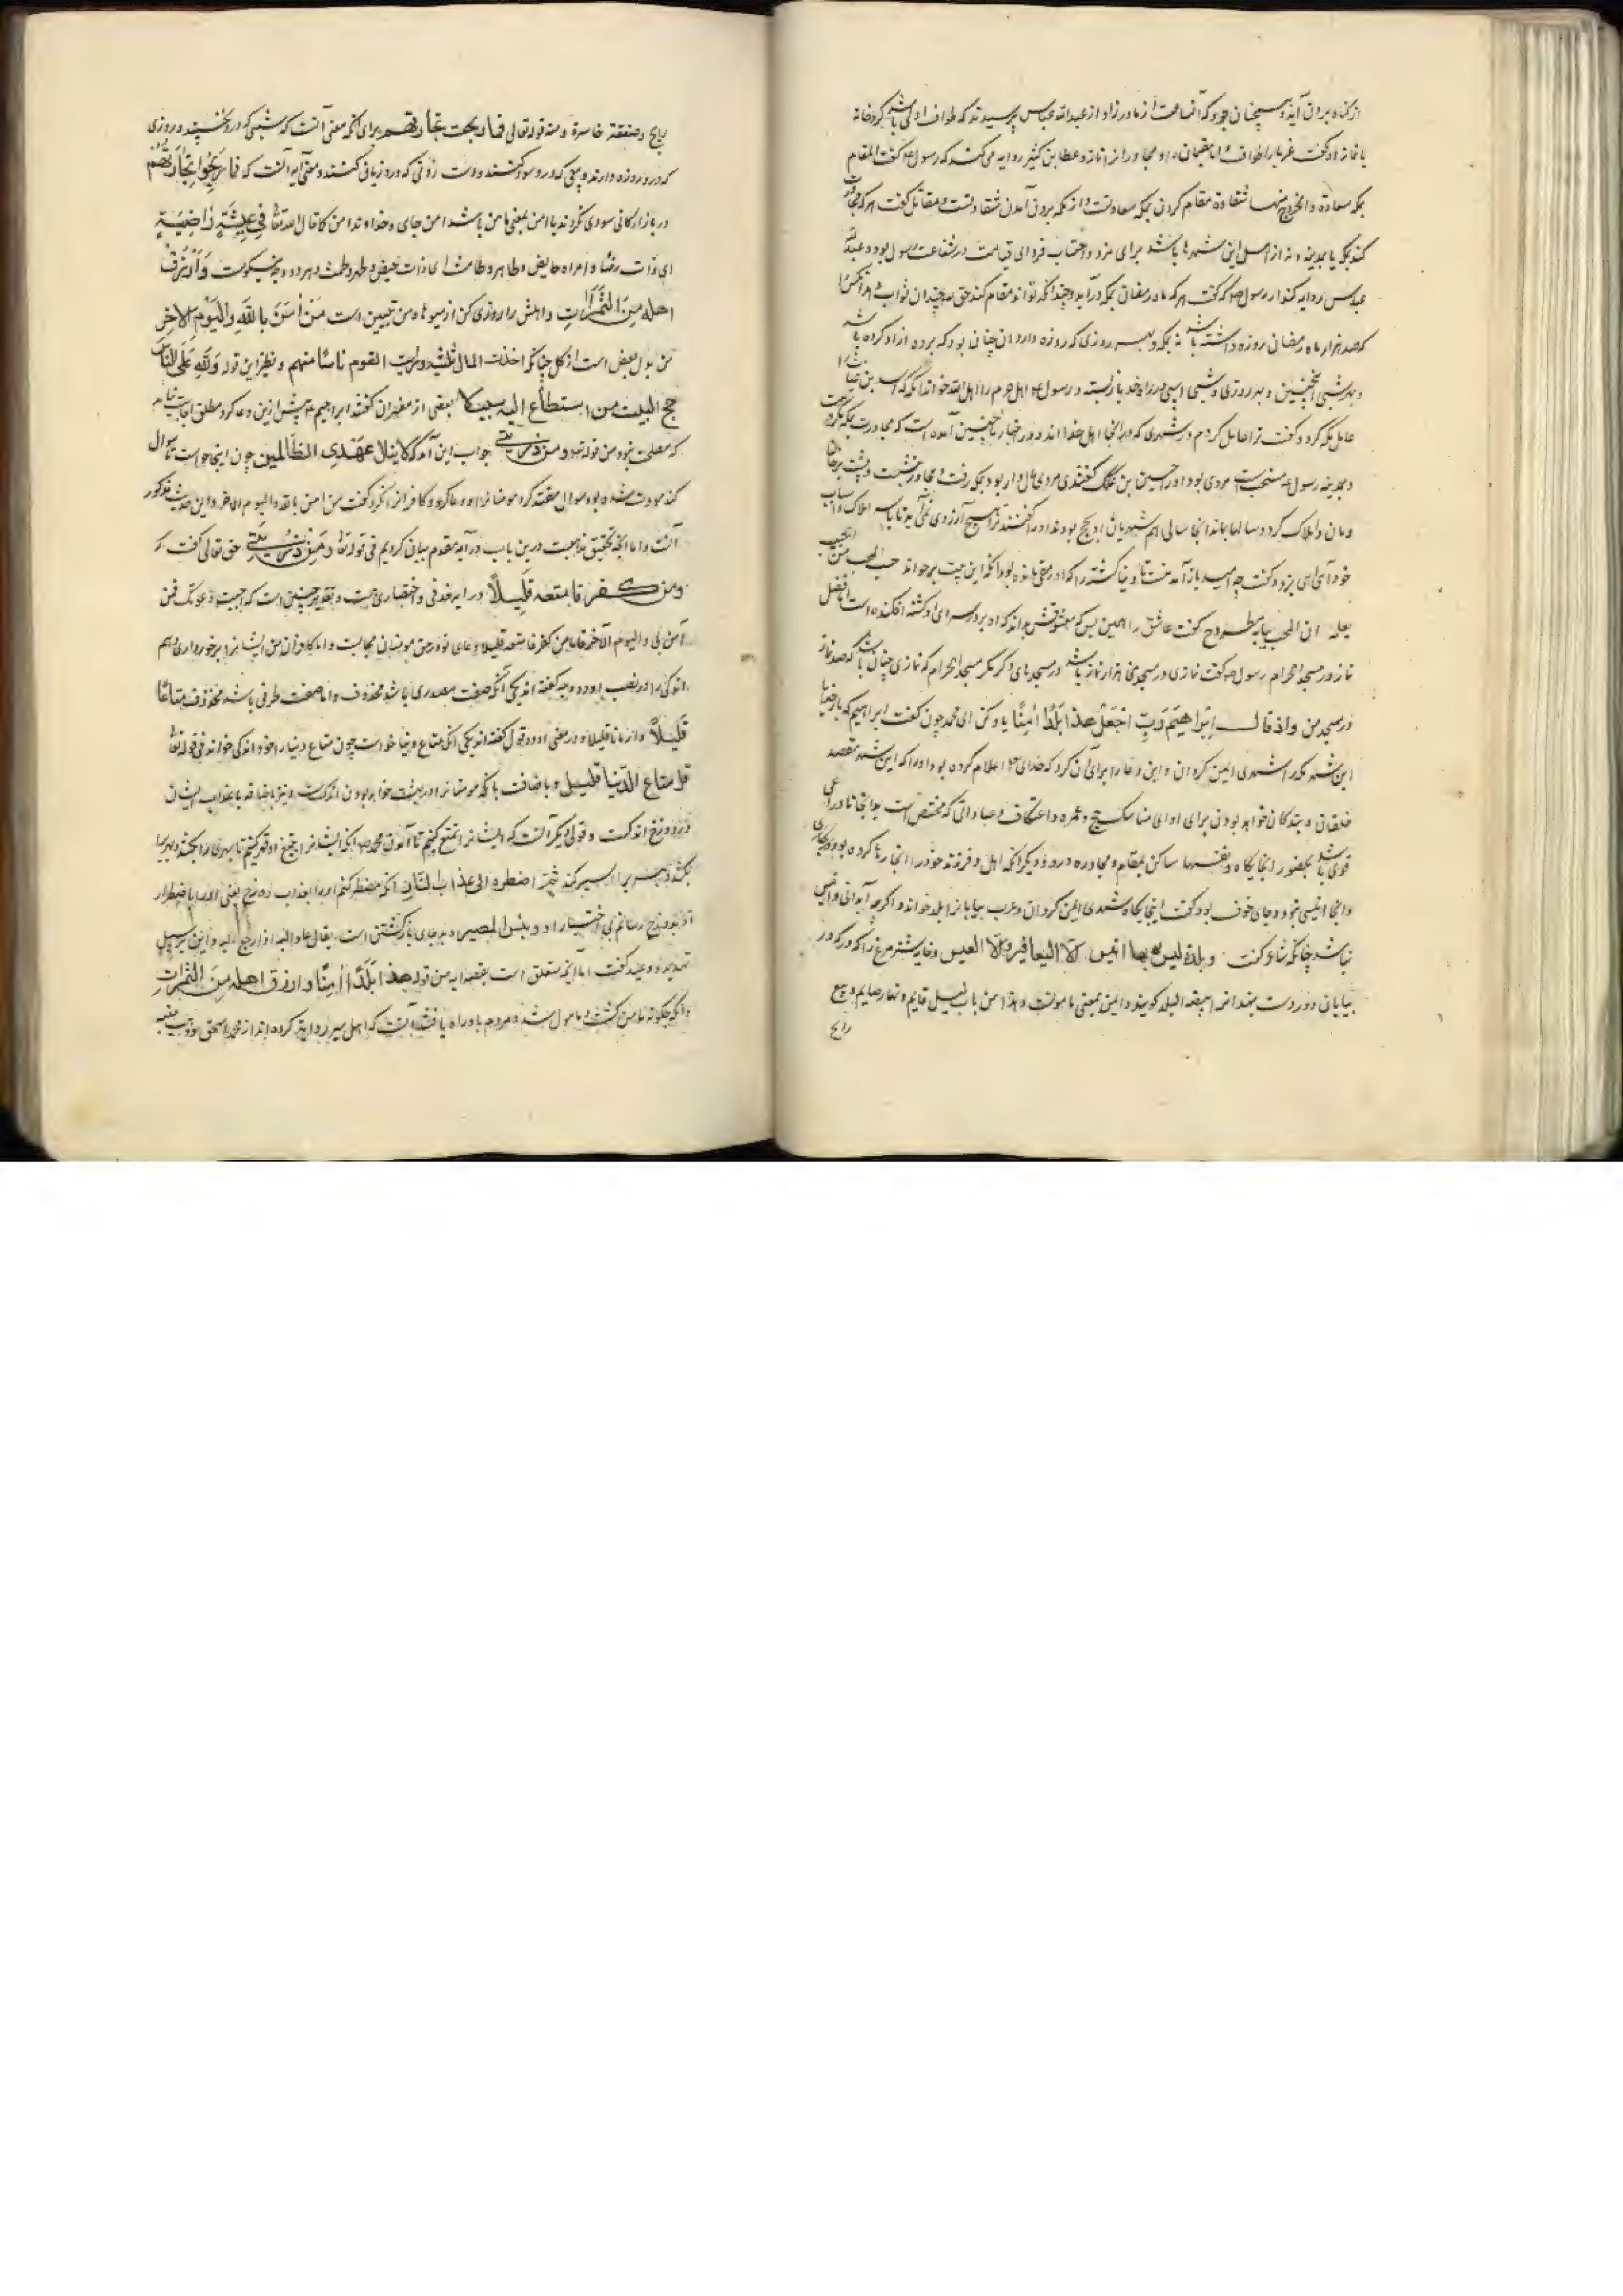 از گناه بیرون آید همچنان بود که آنساعت از مادر زاد و از عبدالله عباس پرسیدند که طواف اولی باشد گرد خانه
یا نماز او گفت غربا را طواف و اما مقیمان را و مجاوران را نماز و عطا بن کثیر روایه می کند که رسول گفت المقام
بمکه سعادة والخروج منها شقاوة مقام کردن بمکه سعادتست و از مکه برون آمدن شقاوتست و مقاتل گفت هر که مجاورت
کند بمکه یا بمدینه و نه از اهل این شهرها باشد برای مزد و احتساب فردای قیامت در شفاعت رسول بود و عبدالله
عباس روایه کند از رسول که گفت هر که ماه رمضان بمکه درآید و چندانکه تواند مقام کند حق چندان ثواب دهد آنکس را
که صد هزار ماه رمضان روزه داشته باشد نه بمکه و بهر روزی که روزه دارد آن چنان بود که برده آزاد کرده باشد
و بهر شبی همچنین و بهر روزی و شبی اسپی در راه خدا بازبسته و رسول اهل حرم را اهل الله خواند آنگه که اسید بن عتاب را
عامل مکه کرد و گفت ترا عامل کردم در شهری که در آنجا اهل خدا اند و در اخبار ما چنین آمده است که مجاورت بمکه مکروهست
و بمدینه رسول مستحب است مردی بود او را حسین بن گفتندی مردی مال دار بود بمکه رفت و مجاور بنشست و پشت بر خان
و مان و املاک کرد و سالها بماند آنجا سالی هم شهریان او بحج بودند او را گفتند ترا هیچ آرزوی نمی آید تا با املاک و اسباب
خود آیی آهی بزد و گفت چه امید باز آمدنست حب المحب من الحبیب
بعله ان المحب ببابه مطروح گفت عاشق را همین بس که معشوقش بداند که او بر در سرای او کشته افکنده است افضل
نماز در مسجد الحرام رسول گفت نمازی در مسجد من هزار نماز باشد در مسجدهای دگر مگر مسجد الحرام که نمازی چنان باشد که صد نماز
در مسجد من واذ قال ابراهیم رب اجعل هذا بلدا امنا یاد کن ای محمد چون گفت ابراهیم که بار خدایا
این شهر مکه را شهری ایمن گردان و این دعا را برای آن کرد که خدای اعلام کرده بود او را که این شهر مقصد
خلقان و بندگان خواهد بودن برای ادای مناسک حج و عمره و اعتکاف و عباداتی که مختص است بدانجا تا دواعی
قوی باشد بحضور آنجایگاه و نفسها ساکن بمقام و مجاوره در و دیگر آنکه اهل و فرزند خود را آنجا رها کرده بود
و آنجا انیسی نبود و جای خوف بود گفت اینجایگاه شهری ایمن گردان و عرب بیابان را بلد خوانند و اگرچه آبادانی و انیس
نباشد چنانکه شاعر گفت وبلدة لیس بها انیس الا الیعافیر والا العیس و خایه شترمرغ را که در
بیابانی دور دست بنهد آنرا بیضة البلد گویند و ایمن بمعنی مامونست و هذا من باب لیل قایم ونهار صایم وبیع
رابح
رابح وصفقة خاسرة ومنه قوله تعالی فما ربحت تجارتهم برای آنکه معنی آنست که شبی که درو خسپند و روزی
که درو روزه دارند و بیعی که درو سود کنند و دست زدنی که درو زیانی کنند و معنی آیه آنست که فما ربحوا فی تجارتهم
در بازارگانی سودی نکردند یا امن بمعنی مامن باشد امن جای و خداوند امن کما قال الله تعالی فی عیشة راضیة
ای ذات رضا وامراة حایض وطاهر وطامث ای ذات حیض وطهر وطمث و هر دو وجه نیکوست وارزق
اهله من الثمرات و اهلش را روزی کن از میوها و من تبیین است من امن بالله والیوم الاخر
من بدل بعض است از کل چنانکه اخذت المال ثلثیه ورایت القوم ناسا منهم و نظیر این قوله ولله علی الناس
حج البیت من استطاع الیه سبیلا بعضی از مفسران گفتند ابراهیم پیش ازین دعا کرد مطلق اجابت نیامد
که مصلحت نبود من قوله ومن ذریتی جواب این آمد که لاینال عهدی الظالمین چون اینجا خواست تا سوال
کند مودب شده بود سوال مقید کرد مومنانرا دعا کرد و کافرانرا نکرد گفت من امن بالله والیوم الاخر و این حدیث مذکور
آنست و اما آنچه تحقیق مذهبست درین باب در آیه مقدم بیان کردیم فی قوله تعالی ومن ذریتی حق تعالی گفت که
ومن کفر فامتعه قلیلا در آیه حذفی و اختصاری هست و تقدیر چنین است که اجیبت دعوتک فمن
آمن بی والیوم الآخر فاما من کفر فامتعه قلیلا دعای تو در حق مومنان مجابست و اما کافران من ایشانرا برخورداری دهم
اندکی و در نصب او دو وجه گفته اند یکی آنکه صفت مصدری باشد محذوف و اما صفت ظرفی باشد محذوف متاعا
قلیلا و زمانا قلیلا و در معنی او دو قول گفته اند یکی آنکه متاع دنیا خواست چون متاع دنیا را خود اندکی خواند فی قوله تعالی
قل متاع الدنیا قلیل و باضافت با آنکه مومنانرا در بهشت خواهد بودن اندکست و نیز باضافه با عذاب ایشان
در دوزخ اندکست و قولی دیگر آنست که ایشانرا تمتع کنم تا آمدن محمد آنگه ایشانرا بتیغ او قهر کنم تا بهری را بکشد و بهری را
بکشد و بهری را اسیر کند ثم اضطره الی عذاب النار آنگه مضطر کنم او را بعذاب دوزخ یعنی او را باضطرار
بدوزخ رسانم بی اختیار او وبئس المصیر و بد جای بازگشتن است یقال صار الیه اذا رجع الیه و این بر سبیل
تهدید و وعید گفت اما آنچه متعلق است بقصه آیه من قوله هذا بلدا امنا وارزق اهله من الثمرات
و آنکه چگونه مامن گشت و ماهول شد و مردم باو راه یافتند آنست که اهل سیر روایه کرده اند از محمد بن اسحق